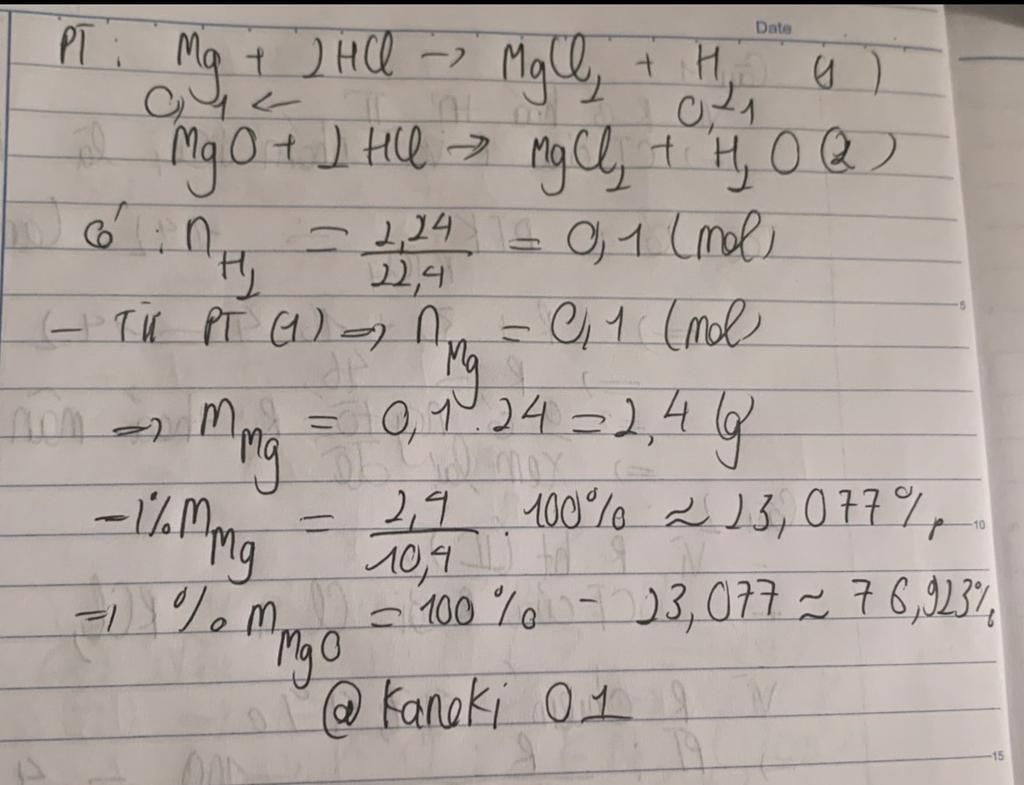 Date
PT : Mg + 2HCl → MgCl₂ + H₂ (1)
0,1 ← 0,1
MgO + 2HCl → MgCl₂ + H₂O (2)
Có : n_H₂ = 2,24/22,4 = 0,1 (mol)
- Từ PT (1) => n_Mg = 0,1 (mol)
=> m_Mg = 0,1 . 24 = 2,4 (g)
=> %m_Mg = 2,4/10,4 . 100% ≈ 23,077%
=> %m_MgO = 100% - 23,077 ≈ 76,923%
@ Kaneki 01
5
10
15